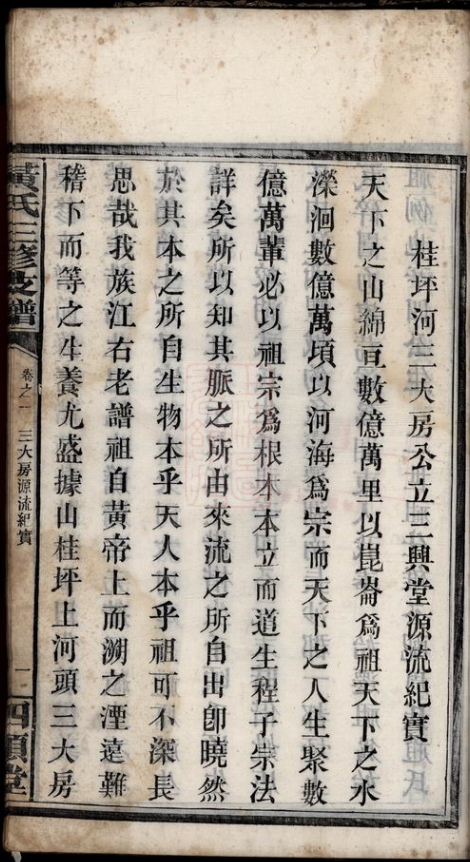 桂坪河三大房公立三興堂源流紀實
天下之山綿亘數億萬里以崑崙爲祖天下之水
濚洄數億萬頃以河海爲宗而天下之人生聚數
億萬輩必以祖宗爲根本本立而道生程子宗法
詳矣所以知其脈之所由來流之所自出卽曉然
於其本之所自生物本乎天人本乎祖可不深長
思哉我族江右老譜祖自黃帝上而溯之湮遠難
稽下而等之生養尤盛據山桂坪上河頭三大房
黃氏三修支譜
卷之一 三大房源流紀實
一
四順堂